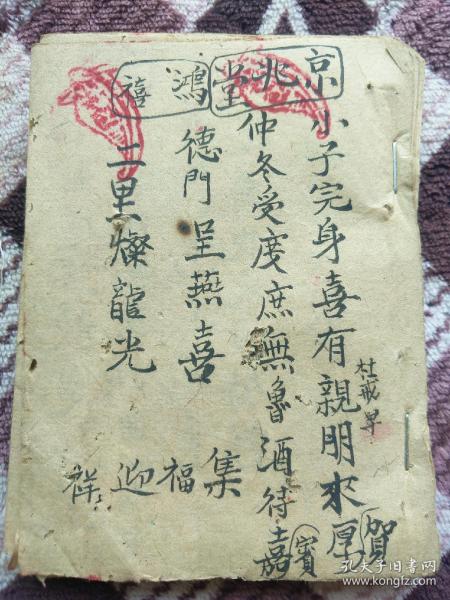 京兆堂 鴻禧
小子完身喜有親朋來厚賀
杜戒尋
仲冬受度庶無魯酒待嘉賓
德門呈燕喜
二里燦龍光
集福迎祥
孔夫子旧书网
www.kongfz.com